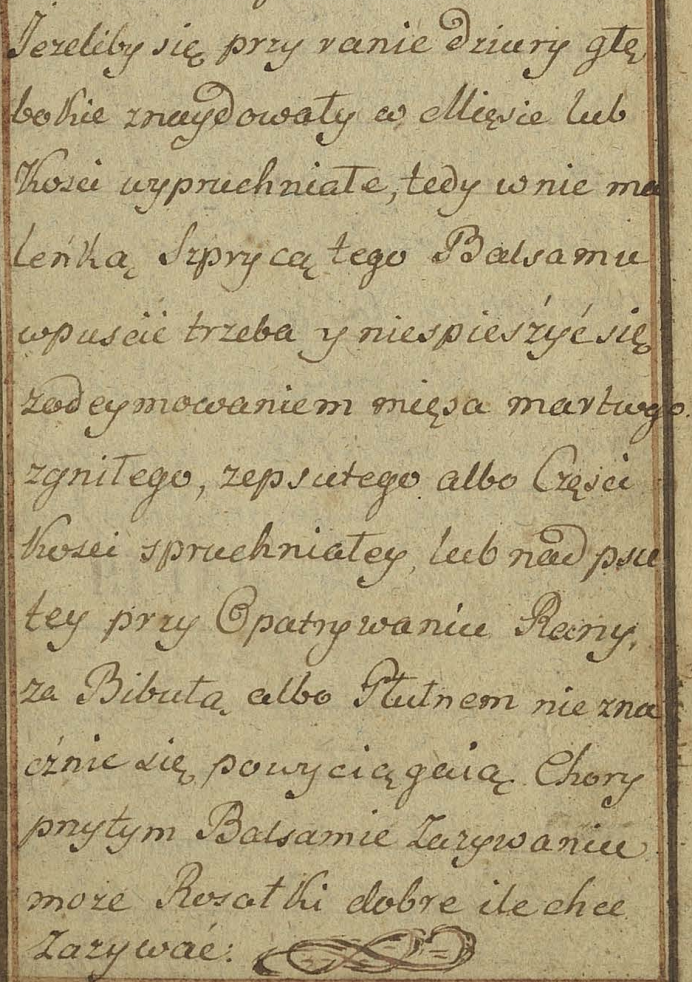 Jezeliby się przy ranie dziury głę
bokie znaydowały w Mięsie lub
Kosci wypruchniałe, tedy w nie ma
leńką Szprycą tego Balsamu
wpuscić trzeba y niespieszyć się
zodeymowaniem mięsa martwgo
zgniłego, zepsutego albo Częsci
Kosci spruchniałey, lub nadpsu
tey przy Opatrywaniu Rany,
za Bibułą albo Płutnem niezna
cznie się powyciągaią. Chory
przytym Balsamie Zazywaniu
moze Rosałki dobre ile chce
Zazywać: